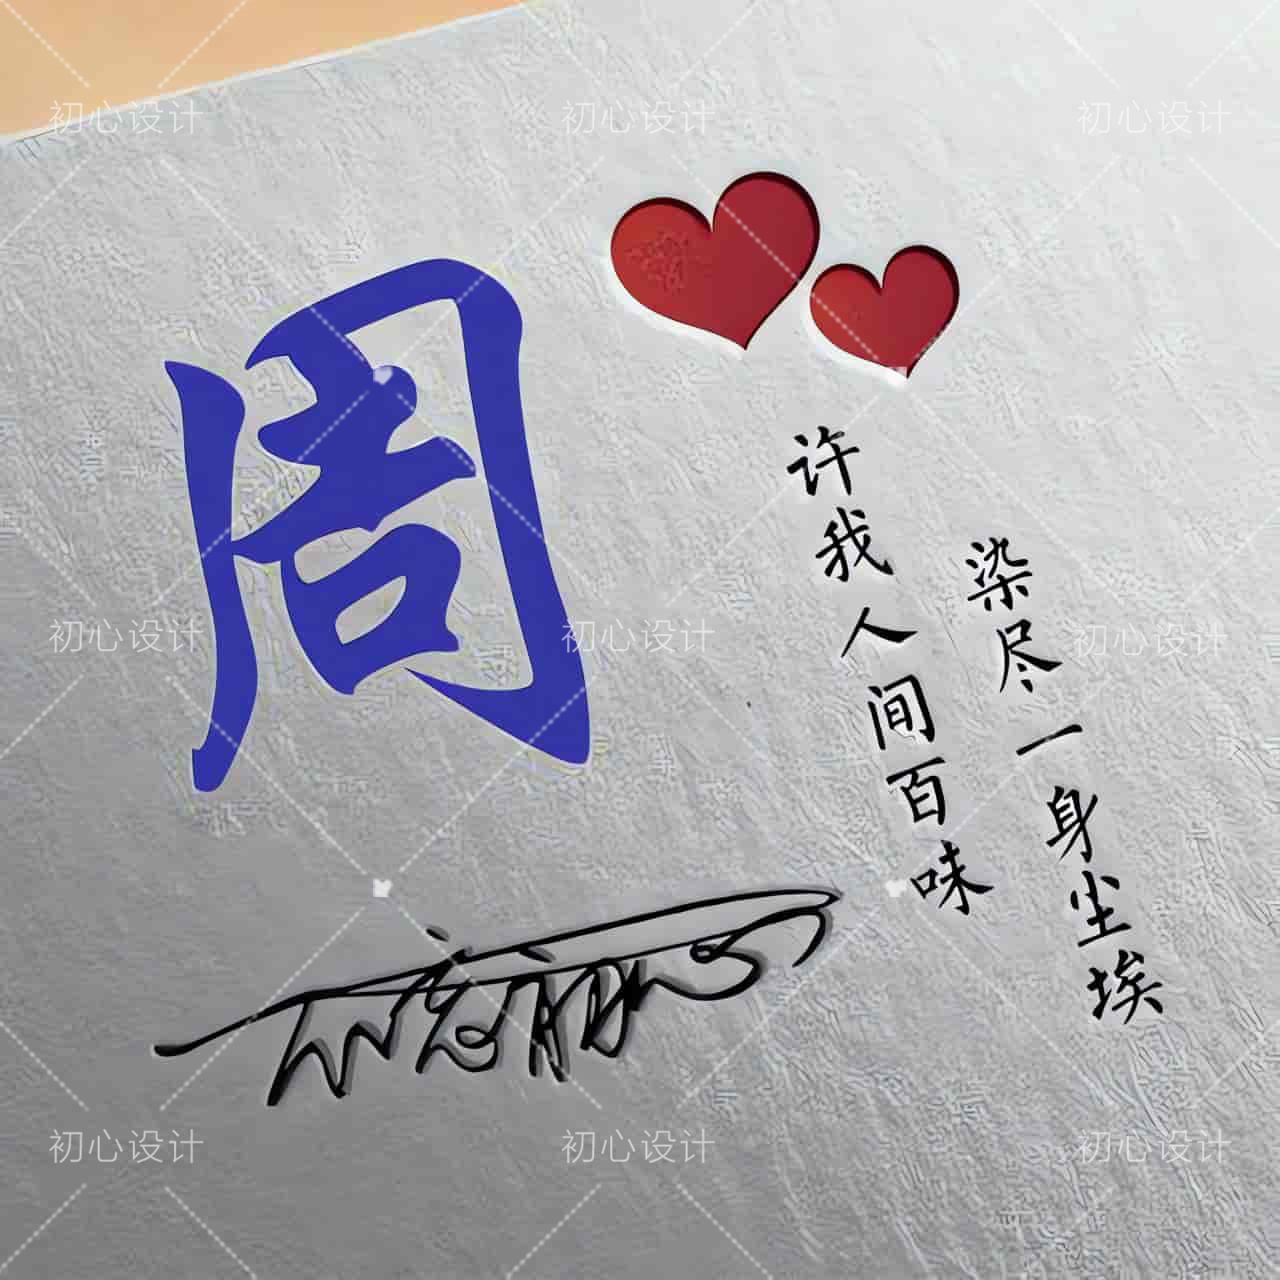 初心设计 初心设计 初心设计
周
许我人间百味
染尽一身尘埃
初心设计 初心设计 初心设计
初心设计 初心设计 初心设计